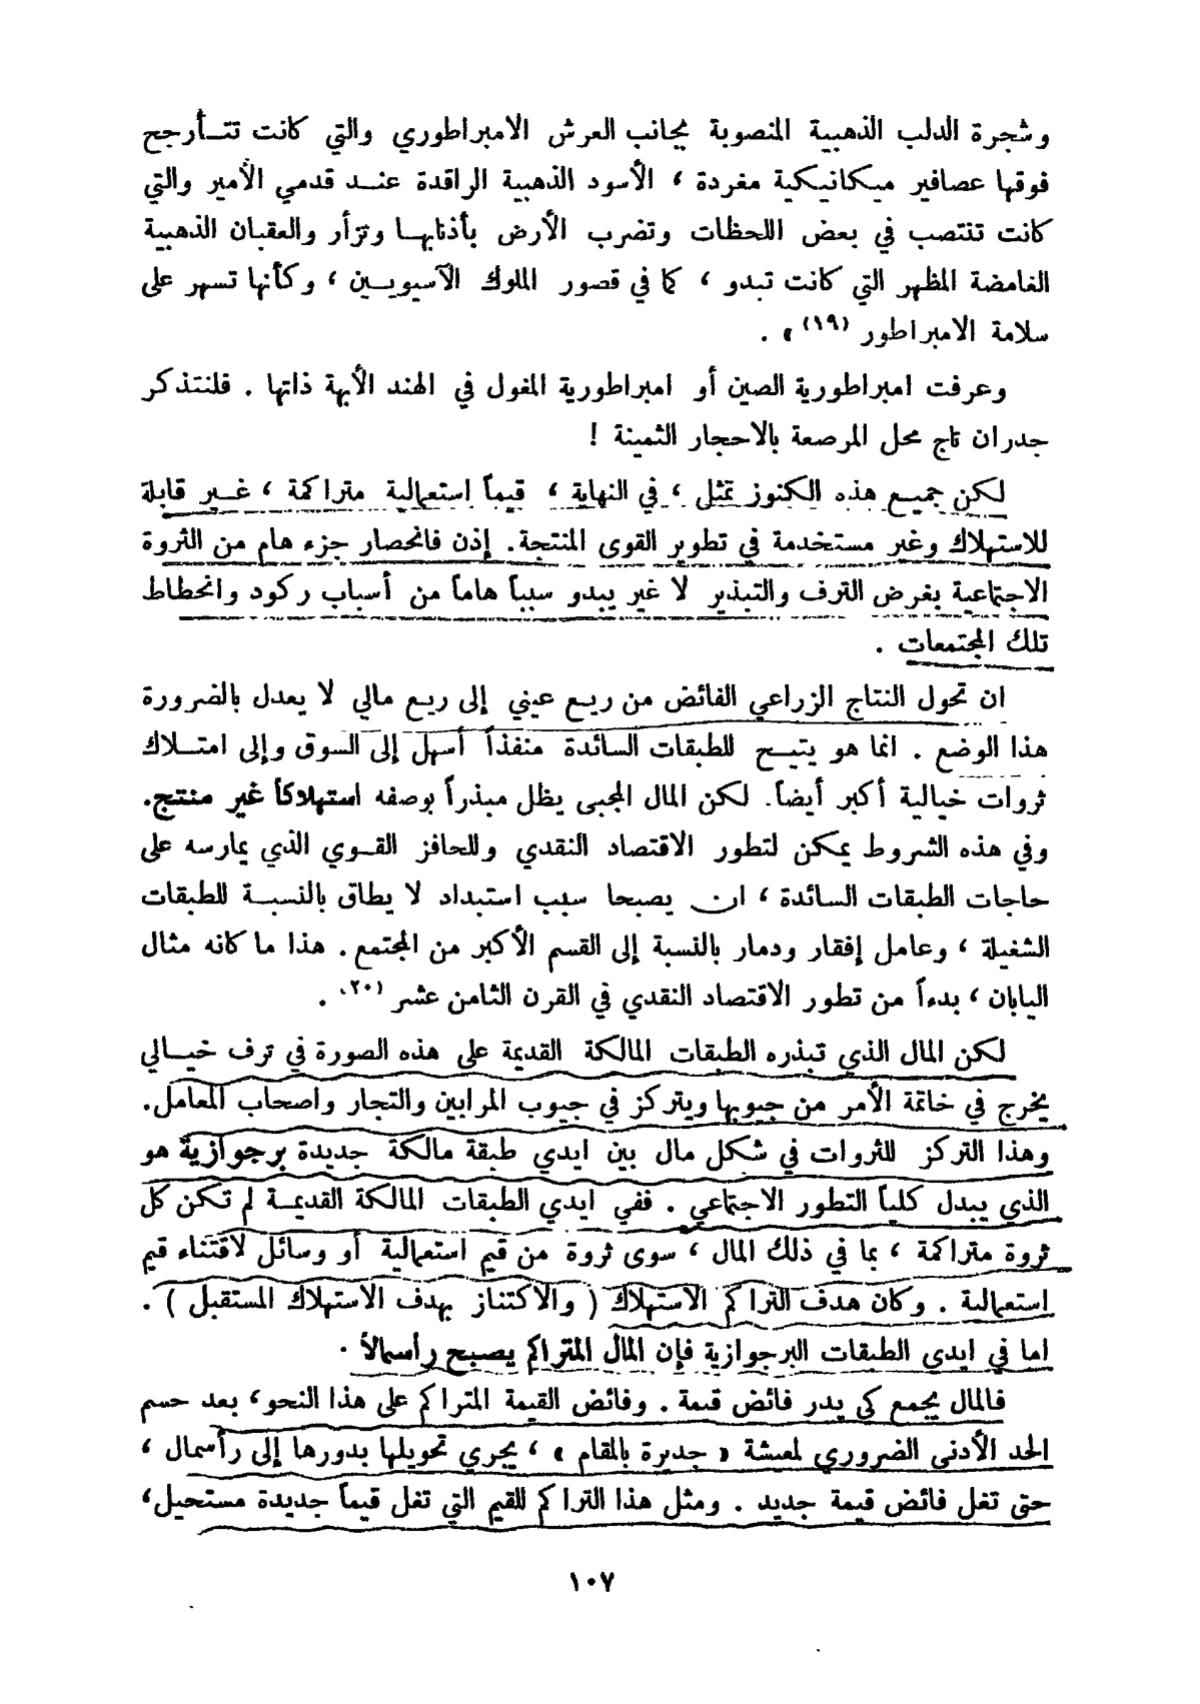 وشجرة الدلب الذهبية المنصوبة بجانب العرش الامبراطوري والتي كانت تتـأرجح
فوقها عصافير ميكانيكية مغردة ، الأسود الذهبية الراقدة عنـد قدمي الأمير والتي
كانت تنتصب في بعض اللحظات وتضرب الأرض بأذنابهـا وتزأر والعقبان الذهبية
الغامضة المظهر التي كانت تبدو ، كما في قصور الملوك الآسيويـين ، وكأنها تسهر على
سلامة الامبراطور (١٩) » .
وعرفت امبراطورية الصين أو امبراطورية المغول في الهند الأبهة ذاتها . فلنتذكر
جدران تاج محل المرصعة بالاحجار الثمينة !
لكن جميـع هذه الكنوز تمثل ، في النهاية ، قيماً استعمالية متراكمة ، غـير قابلة
للاستهلاك وغير مستخدمة في تطوير القوى المنتجة. إذن فانحصار جزء هام من الثروة
الاجتماعية بغرض الترف والتبذير لا غير يبدو سبباً هاماً من أسباب ركود وانحطاط
تلك المجتمعات .
ان تحول النتاج الزراعي الفائض من ريـع عيني إلى ريـع مالي لا يعدل بالضرورة
هذا الوضع . انما هو يتيـح للطبقات السائدة منفذاً أسهل إلى السوق وإلى امتـلاك
ثروات خيالية أكبر أيضاً. لكن المال المجبى يظل مبذراً بوصفه استهلاكاً غير منتج.
وفي هذه الشروط يمكن لتطور الاقتصاد النقدي وللحافز القـوي الذي يمارسه على
حاجات الطبقات السائدة ، ان يصبحا سبب استبداد لا يطاق بالنسبـة للطبقات
الشغيلة ، وعامل إفقار ودمار بالنسبة إلى القسم الأكبر من المجتمع. هذا ما كانه مثال
اليابان ، بدءاً من تطور الاقتصاد النقدي في القرن الثامن عشر (٢٠) .
لكن المال الذي تبذره الطبقات المالكة القديمة على هذه الصورة في ترف خيـالي
يخرج في خاتمة الأمر من جيوبها ويتركز في جيوب المرابين والتجار واصحاب المعامل.
وهذا التركز للثروات في شكل مال بين ايدي طبقة مالكة جديدة برجوازية هو
الذي يبدل كلياً التطور الاجتماعي . ففي ايدي الطبقات المالكة القديمـة لم تكن كل
ثروة متراكمة ، بما في ذلك المال ، سوى ثروة من قيم استعمالية أو وسائل لاقتناء قيم
استعمالية . وكان هدف التراكم الاستهلاك ( والاكتناز بهدف الاستهلاك المستقبل ) .
اما في ايدي الطبقات البرجوازية فإن المال المتراكم يصبح رأسمالاً .
فالمال يجمع كي يدر فائض قيمة . وفائض القيمة المتراكم على هذا النحو، بعد حسم
الحد الأدنى الضروري لمعيشة « جديرة بالمقام » ، يجري تحويلها بدورها إلى رأسمال ،
حتى تغل فائض قيمة جديد . ومثل هذا التراكم للقيم التي تغل قيماً جديدة مستحيل،
١٠٧